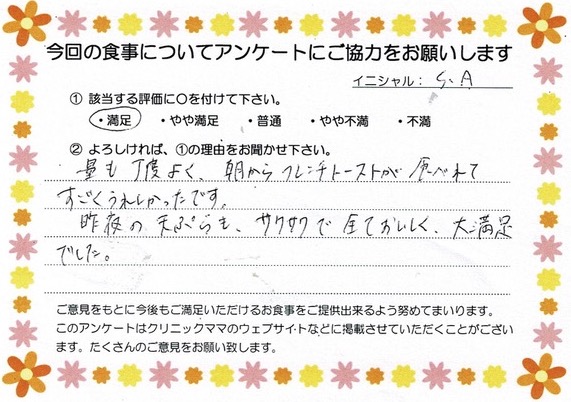 今回の食事についてアンケートにご協力をお願いします
イニシャル： S.A
① 該当する評価に〇を付けて下さい。
・満足 ・やや満足 ・普通 ・やや不満 ・不満
② よろしければ、①の理由をお聞かせ下さい。
量も丁度よく、朝からフレンチトーストが食べれて
すごくうれしかったです。
昨夜の天ぷらも、サクサクで全ておいしく、大満足
でした。
ご意見をもとに今後もご満足いただけるお食事をご提供出来るよう努めてまいります。
このアンケートはクリニックママのウェブサイトなどに掲載させていただくことがござい
ます。たくさんのご意見をお願い致します。